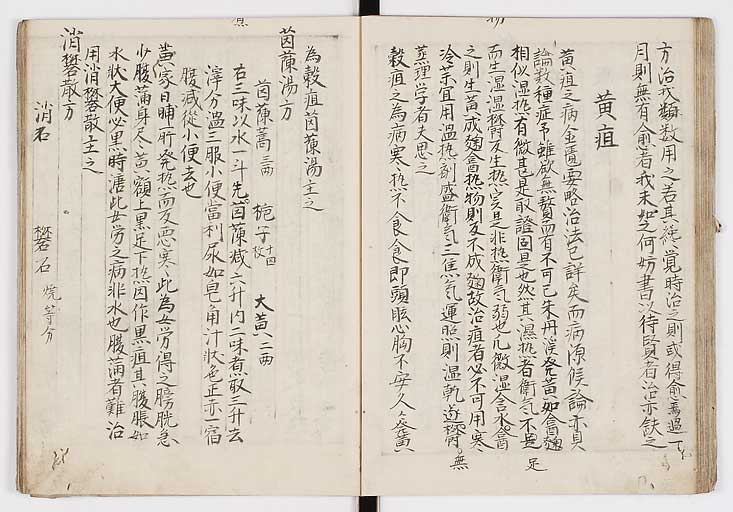 方治或類数用之若其純覚時治之則或得愈焉過一
月則無有愈者我未如之何妨書以待賢者治亦鉄之
黄疸
黄疸之病金匱要略治法已詳矣而病源候論亦具
論数種症予雖欲無贅而有不可已朱丹溪発黄如盦麹
相似湿熱有微甚是取證固是也然其湿熱者衛気不足
而生湿湿欝乃生熱実是非熱衛気弱也凡微湿含水盦
之則生黄成麹盦熱物則反不成麹故治疸者必不可用寒
冷茶宜用温熱剤盛衛気二焦気運照則湿乾遊欝無
蒸理学者夫思之
穀疸之為病寒熱不食食即頭眩心胸不安久久発黄
為穀疸茵蔯湯主之
茵蔯湯方
茵蔯蒿三両 梔子十四枚 大黄二両
右三味以水一斗先茵蔯減六升内二味煮取三升去
滓分温三服小便當利尿如皂角汁状色正赤一宿
腹減從小便去也
黄家日晡所発熱而反悪寒此為女労得之膀胱急
少腹満身尽黄額上黒足下熱因作黒疸其腹脹如
水状大便必黒時溏此女労之病非水也腹満者難治
用消礬散主之
消礬散方
消石 礬石焼等分